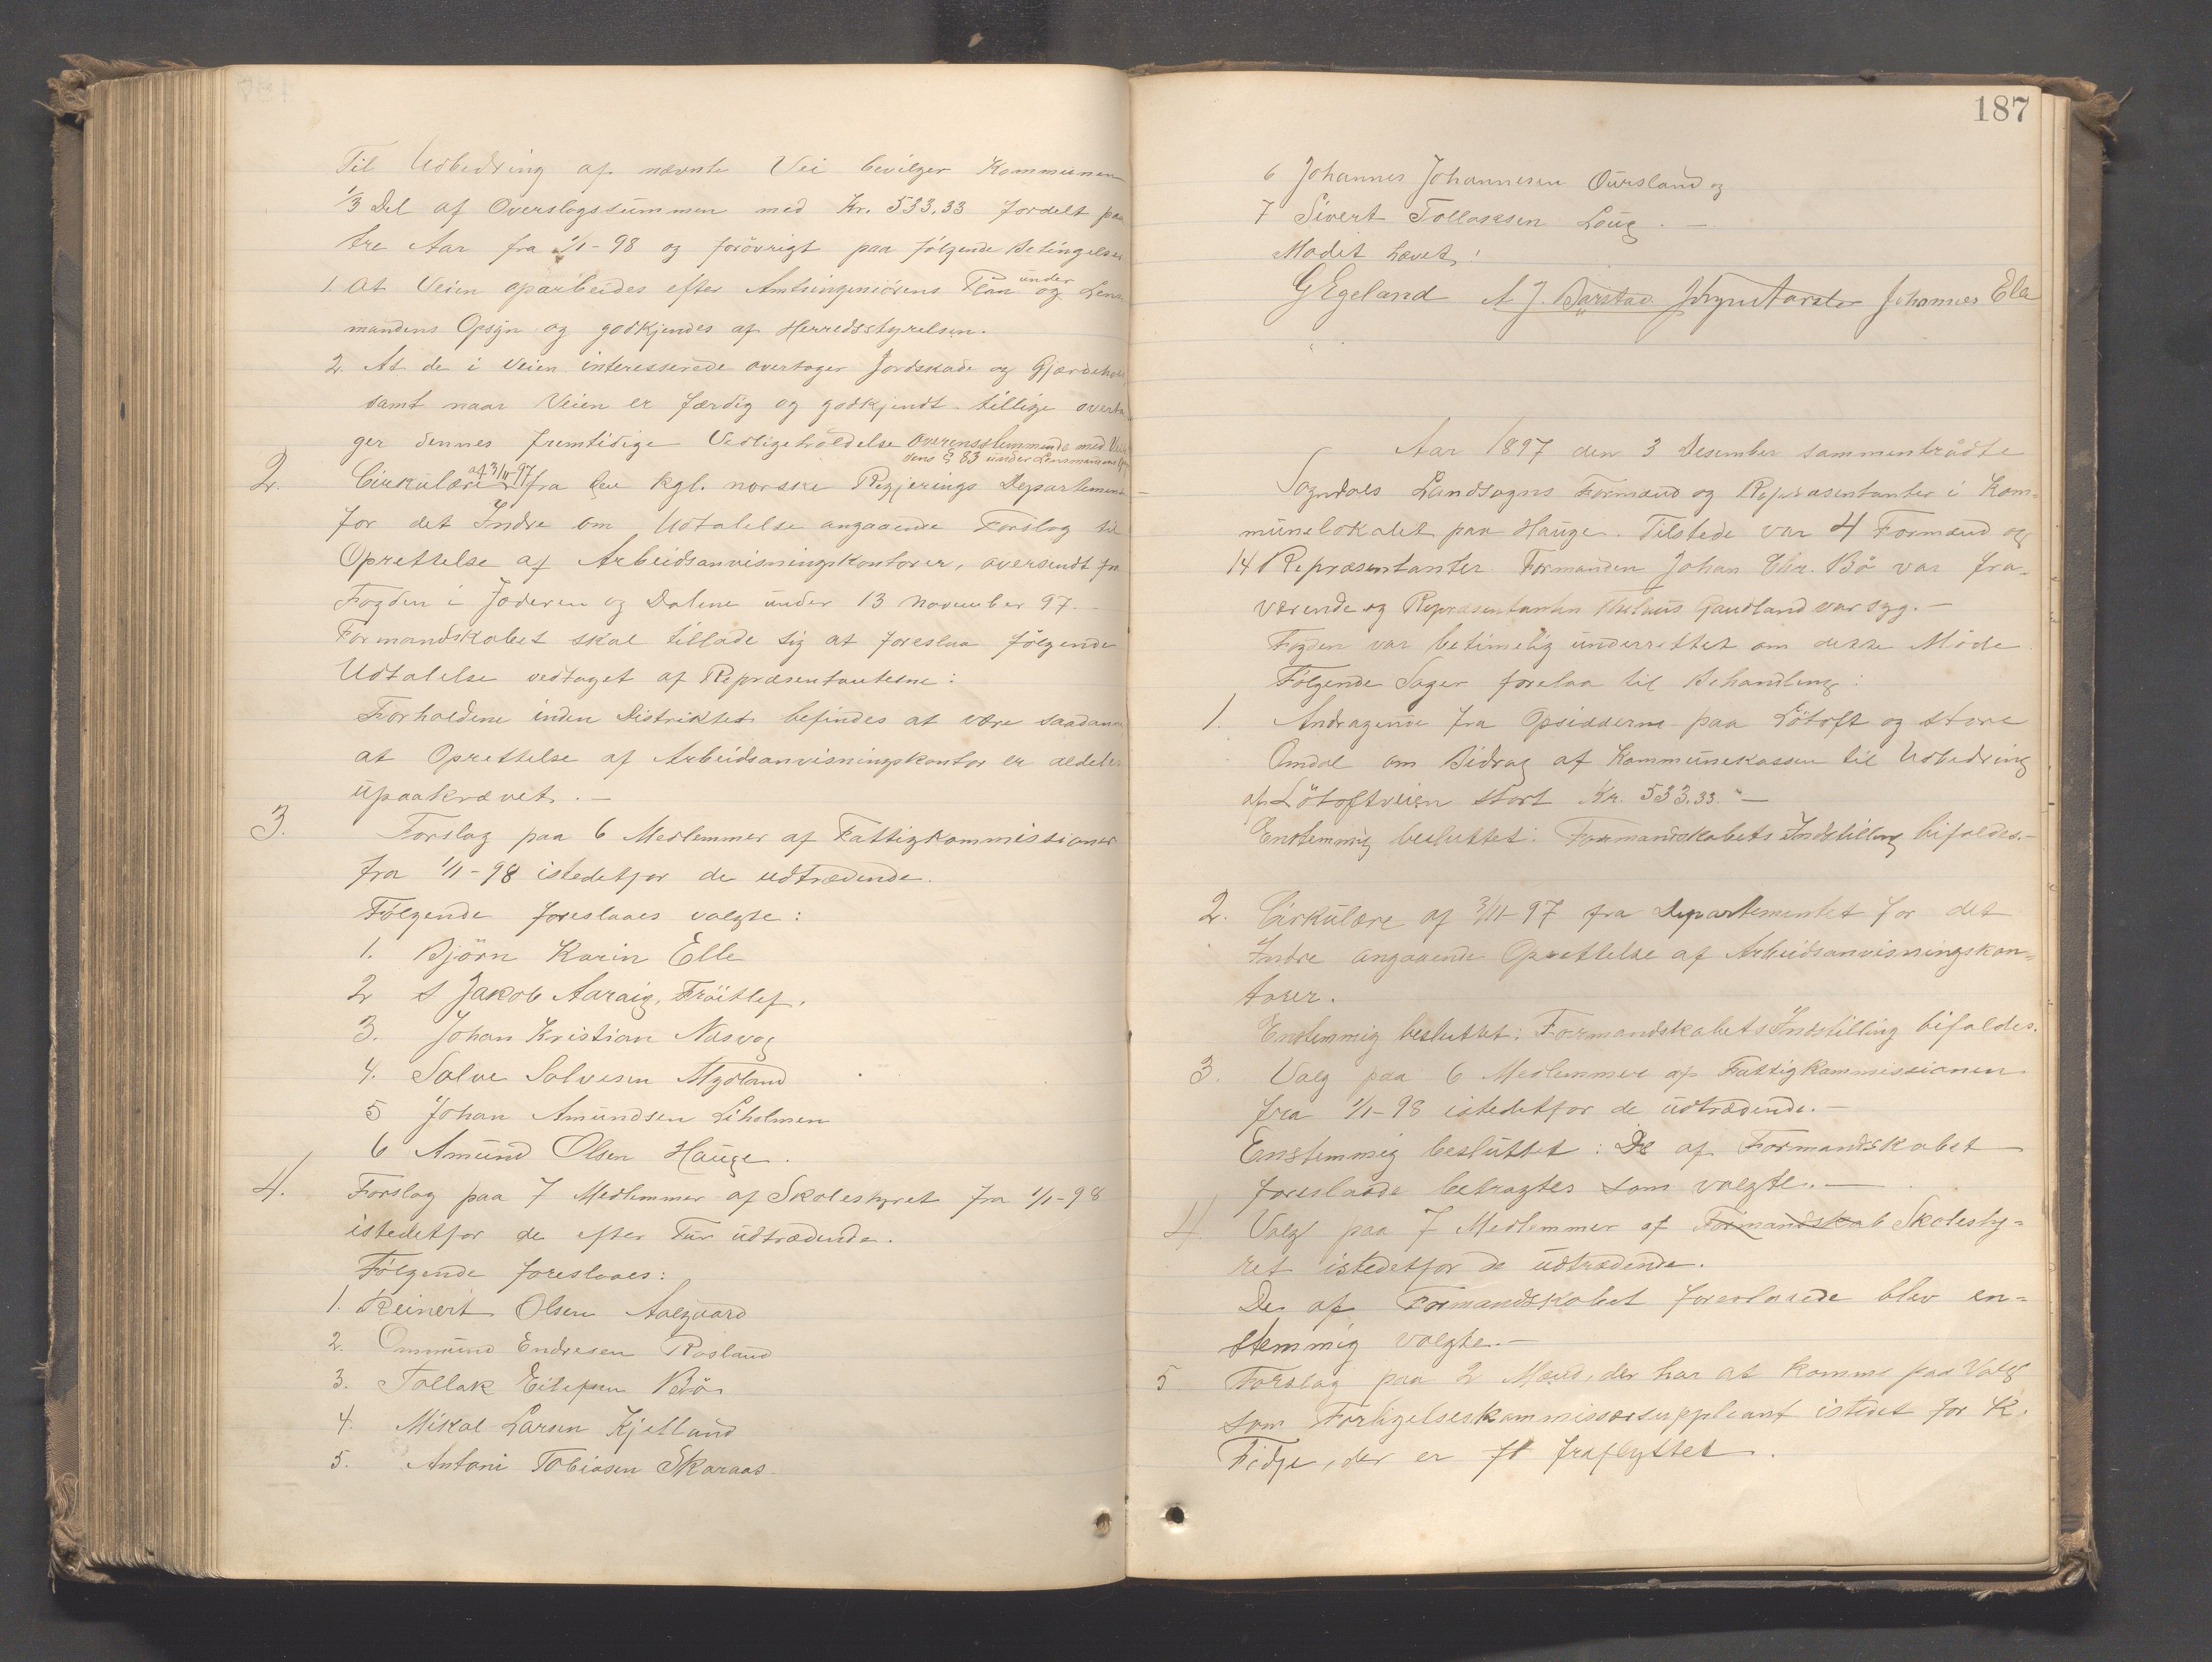 Til Udbedring af nævnte Vei bevilger Kommunen
1/3 Del af Overslagssummen med Kr. 533.33 fordelt paa
tre Aar fra 1/1-98 og forøvrigt paa følgende Betingelser
1. At Veien oparbeides efter Amtsingeniørens Plan og under Lens
mandens Opsyn og godkjendes af Herredsstyrelsen.
2. At de i Veien interesserede overtager Jordskade og Gjærdehold,
samt naar Veien er færdig og godkjendt tillige overta
ger dennes fremtidige Vedligeholdelse overensstemmende med
§ 83 under Lensmandens
2. Cirkulære af 3/11-97 fra den kgl. norske Regjerings Departement
for det Indre om Udtalelse angaaende Forslag til
Oprettelse af Arbeidsanvisningskontorer, oversendt fra
Fogden i Jæderen og Dalene under 13 November 97.-
Formandskabet skal tillade sig at foreslaa følgende
Udtalelse vedtaget af Repræsentanterne:
Forholdene inden Distriktet befindes at være saadanne
at Oprettelse af Arbeidsanvisningskontor er aldeles
upaakrævet.-
3. Forslag paa 6 Medlemmer af Fattigkommissionen
fra 1/1-98 istedetfor de udtrædende.
Følgende foreslaaes valgte:
1. Bjørn Karin Elle
2 Jakob Aaraig, Frøitlef.
3. Johan Kristian Nesvog
4. Salve Salvesen Mydland
5 Johan Amundsen Liholmen
6 Amund Olsen Hauge.
4. Forslag paa 7 Medlemmer af Skolestyret fra 1/1-98
istedetfor de efter Tur udtrædende.
Følgende foreslaaes:
1. Reinert Olsen Aalgaard
2. Ommund Endresen Rosland
3. Tollak Eilefsen Bø
4. Mikal Larsen Kjelland
5. Antoni Tobiasen Skaraas
187
6 Johannes Johannesen Øursland og
7 Sivert Tollaksen Loug.-
Mødet hævet!
G Egeland A J. Barstad Johannes Elle
Aar 1897 den 3 Desember sammentrådte
Sogndals Landsogns Formænd og Repræsentanter i Kom-
munelokalet paa Hauge. Tilstede var 4 Formænd og
14 Repræsentanter. Formanden Johan Chr. Bø var fra-
værende og Repræsentanten Gaudland var syg.-
Fogden var betimelig underrettet om dette Møde.
Følgende Sager forelaa til Behandling:
1. Andragende fra Opsidderne paa Løtoft og store
Omdal om Bidrag af Kommunekassen til Udbedring
af Løtoftveien stort Kr. 533.33.-
Enstemmig besluttet: Formandskabets Indstilling bifaldes.-
2. Cirkulære af 3/11-97 fra Departementet for det
Indre angaaende Oprettelse af Arbeidsanvisningskon-
torer.
Enstemmig besluttet: Formandskabets Indstilling bifaldes.
3. Valg paa 6 Medlemmer af Fattigkommissionen
fra 1/1-98 istedetfor de udtrædende.-
Enstemmig besluttet: De af Formandskabet
foreslaade betragtes som valgte.-
4. Valg paa 7 Medlemmer af Formandskab Skolesty-
ret istedetfor de udtrædende.
De af Formandskabet foreslaaede blev en-
stemmig valgte.-
5 Forslag paa 2 Mænd, der har at komme paa Valg
som Forligelseskommissærsuppleant istedet for K.
Fidje, der er fraflyttet.